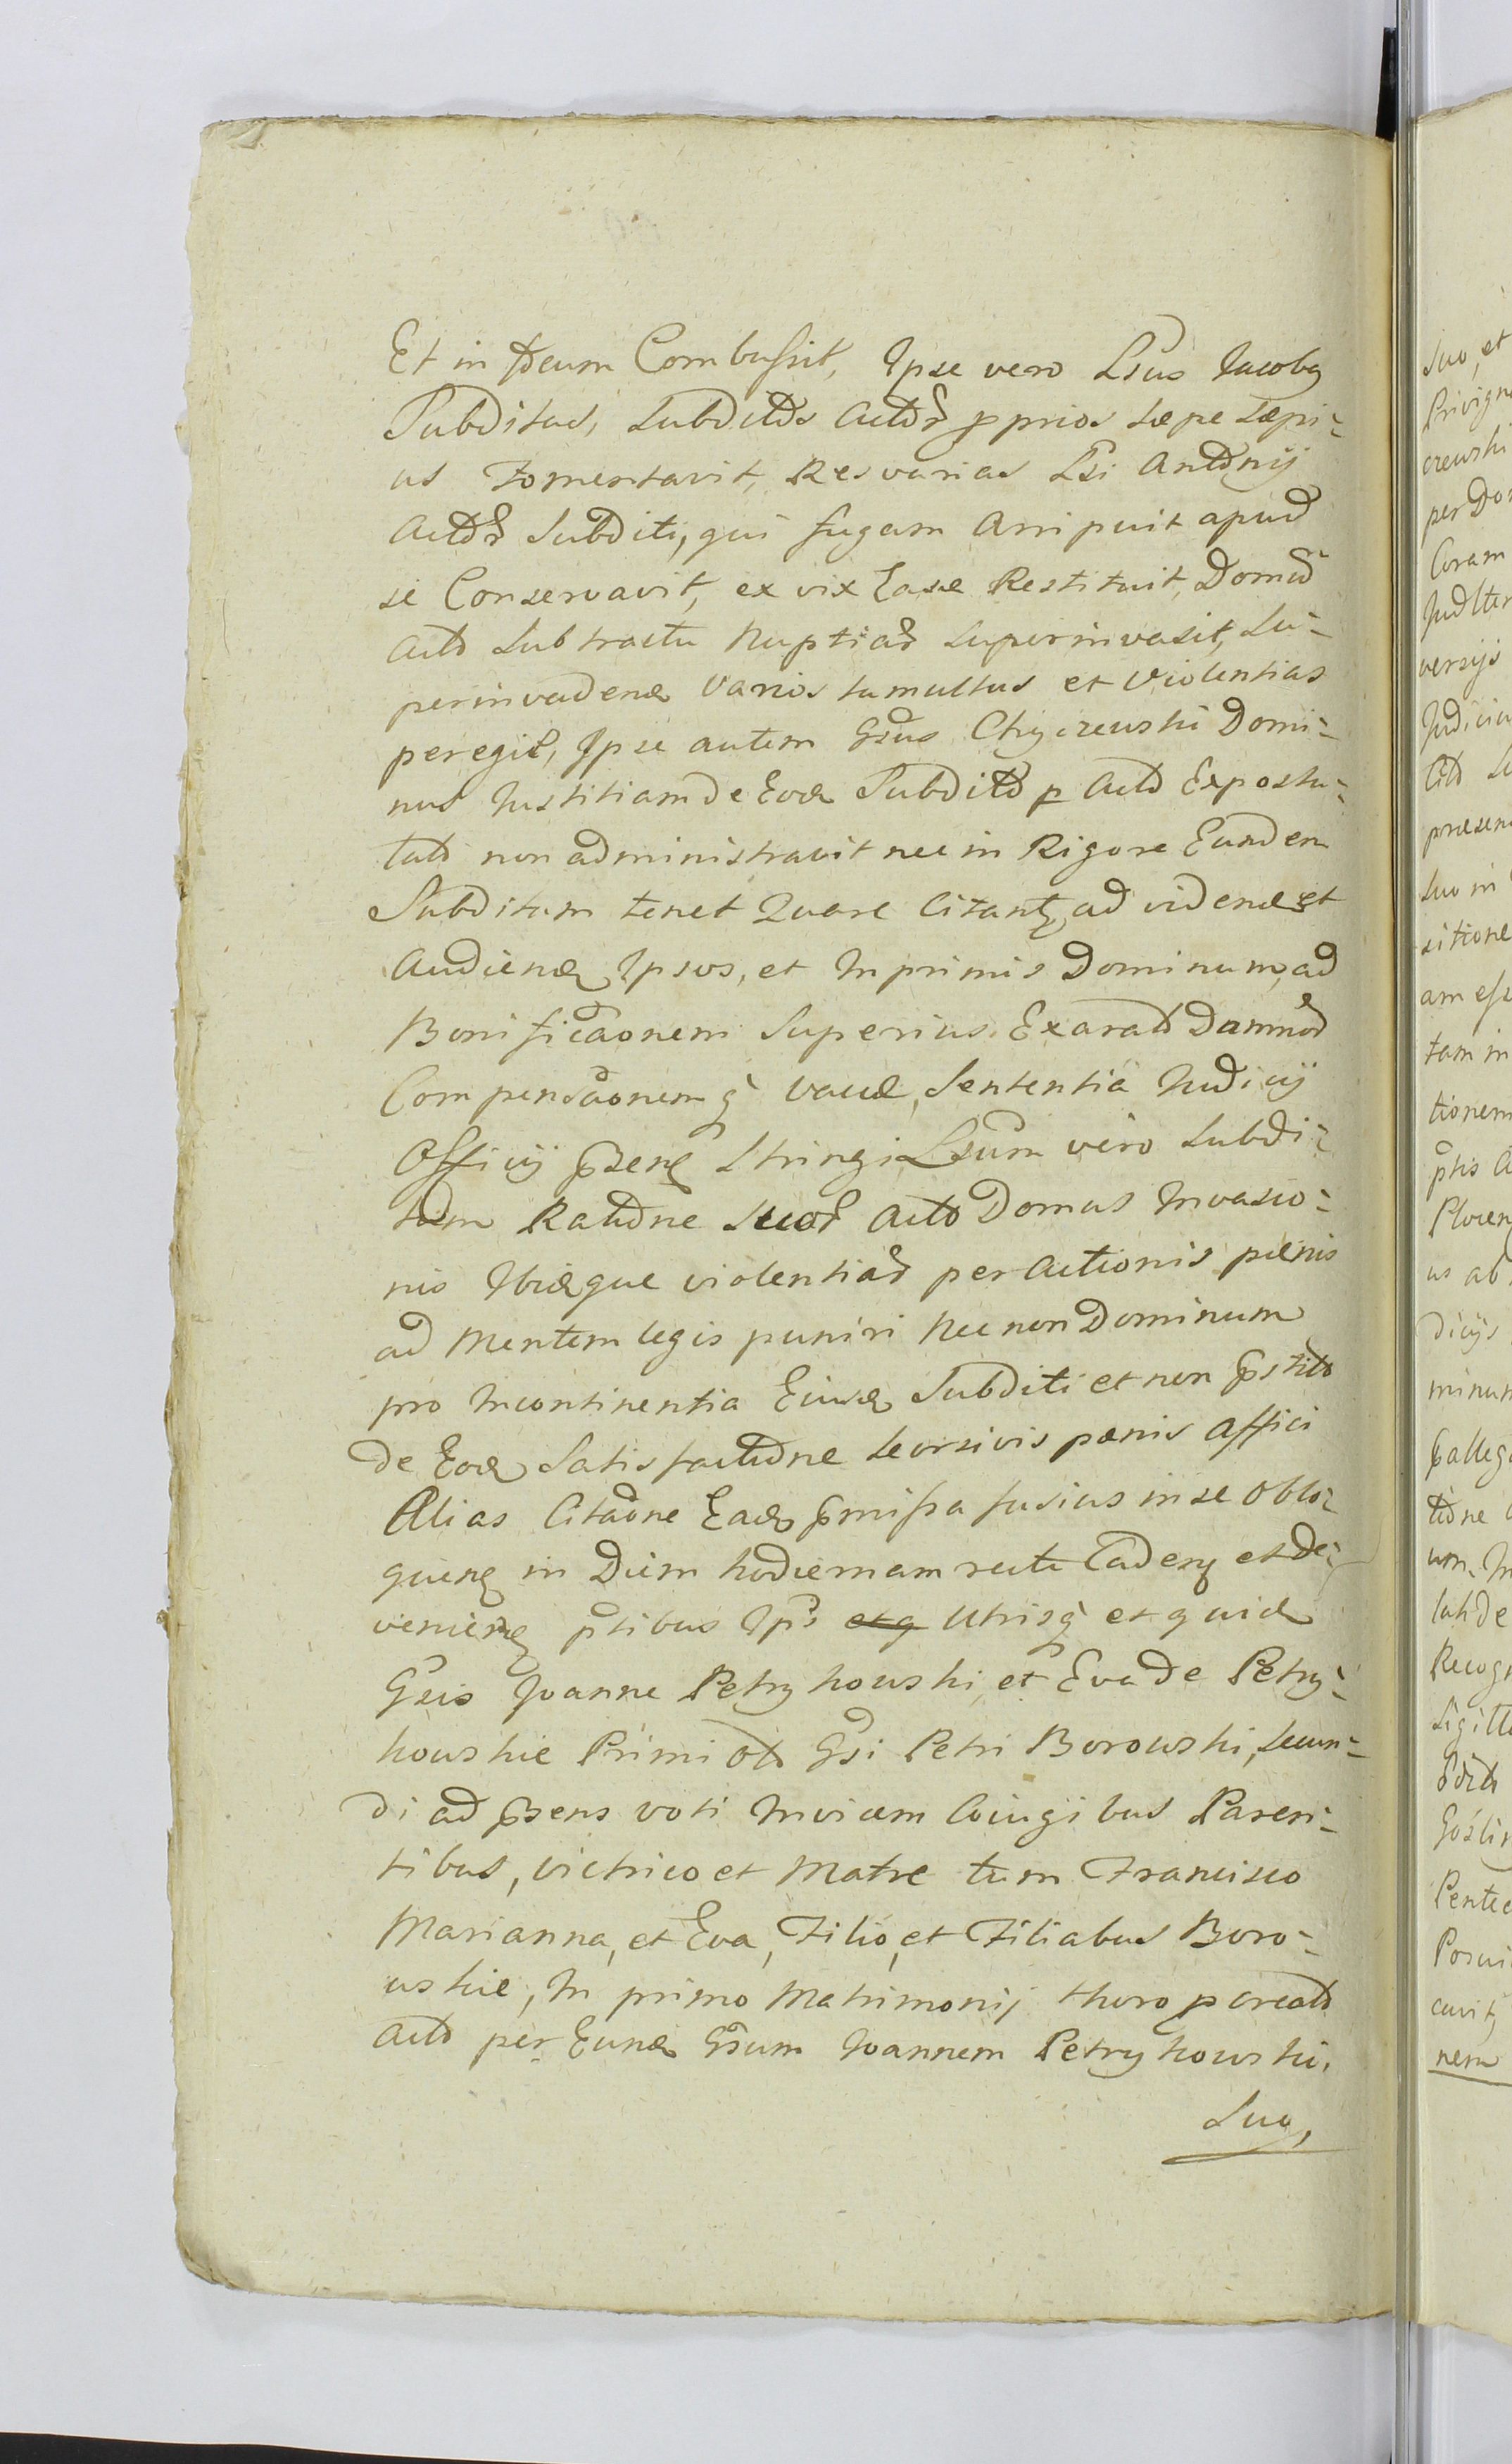 Et in totum Combussit, Ipse vero Lsus Jacobq
Subditus, Subditos Actor pprios sæpe sæpi-
us Fomentavit, Res varias Lsi Antonij
Actor Subditi, qui fugam Arripuit apud
se Conservavit, ex vix Easq Restituit, Domum
Acto Subtractu Nuptiar superinvasit, Su-
perinvadend Varios tumultus et Violentias
peregit, Ipse autem Gsus Chyczewski Domi-
nus Justitiam de Eod Subdito p Acto Expostu-
lato non administravit nec in Rigore Eundem
Subditum tenet Quare Citantq ad vidend et
Audiend Ipsos, et Inprimis Dominum, ad
Bonificaonem Superius Exarato Damnor
Compensaonem q̀ Sententia Judicij
Officij Psenq Stringi Lsum vero Subdi-
tum Ratione suor Acto Domus Invasio-
nis Ibidque violentiar per Actionis pænis
ad Mentem legis puniri Nec non Dominum
pro Incontinentia Eiusd Subditi et non Pstito
de Eod Satisfactione seorsivis pænis Affici
Alias Citaone Ead Pmissa fusius in se Oblo-
quenq in Diem hodiernam recte Cadenq et de-
venienq Ptibus Ips etq Utrisq̀ et quid
Gsis Joanne Petrykowski, et Eva de Petry-
kowskie Primi oto Gsi Petri Borowski, Secun-
di ad Psens voti Invicem Coiugibus Paren-
tibus, Victrico et Matre tum Francisco
Marianna, et Eva, Filio, et Filiabus Boro-
wskie, In primo Matrimonij thoro pcreato
Acto per Eund Gsum Joannem Petrykowski,
Suo,
Suo, et
Coram
versijs
Suo in
tam in
tionem
us ab
dicijs
Recog
cavit,
nem